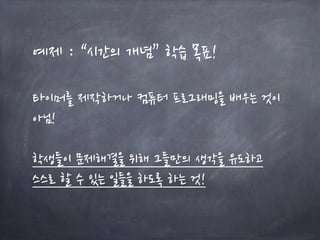 예제 : “시간의 개념” 학습 목표!
타이머를 제작하거나 컴퓨터 프로그래밍을 배우는 것이
아님!
학생들이 문제해결을 위해 그들만의 생각을 유도하고
스스로 할 수 있는 일들을 하도록 하는 것!